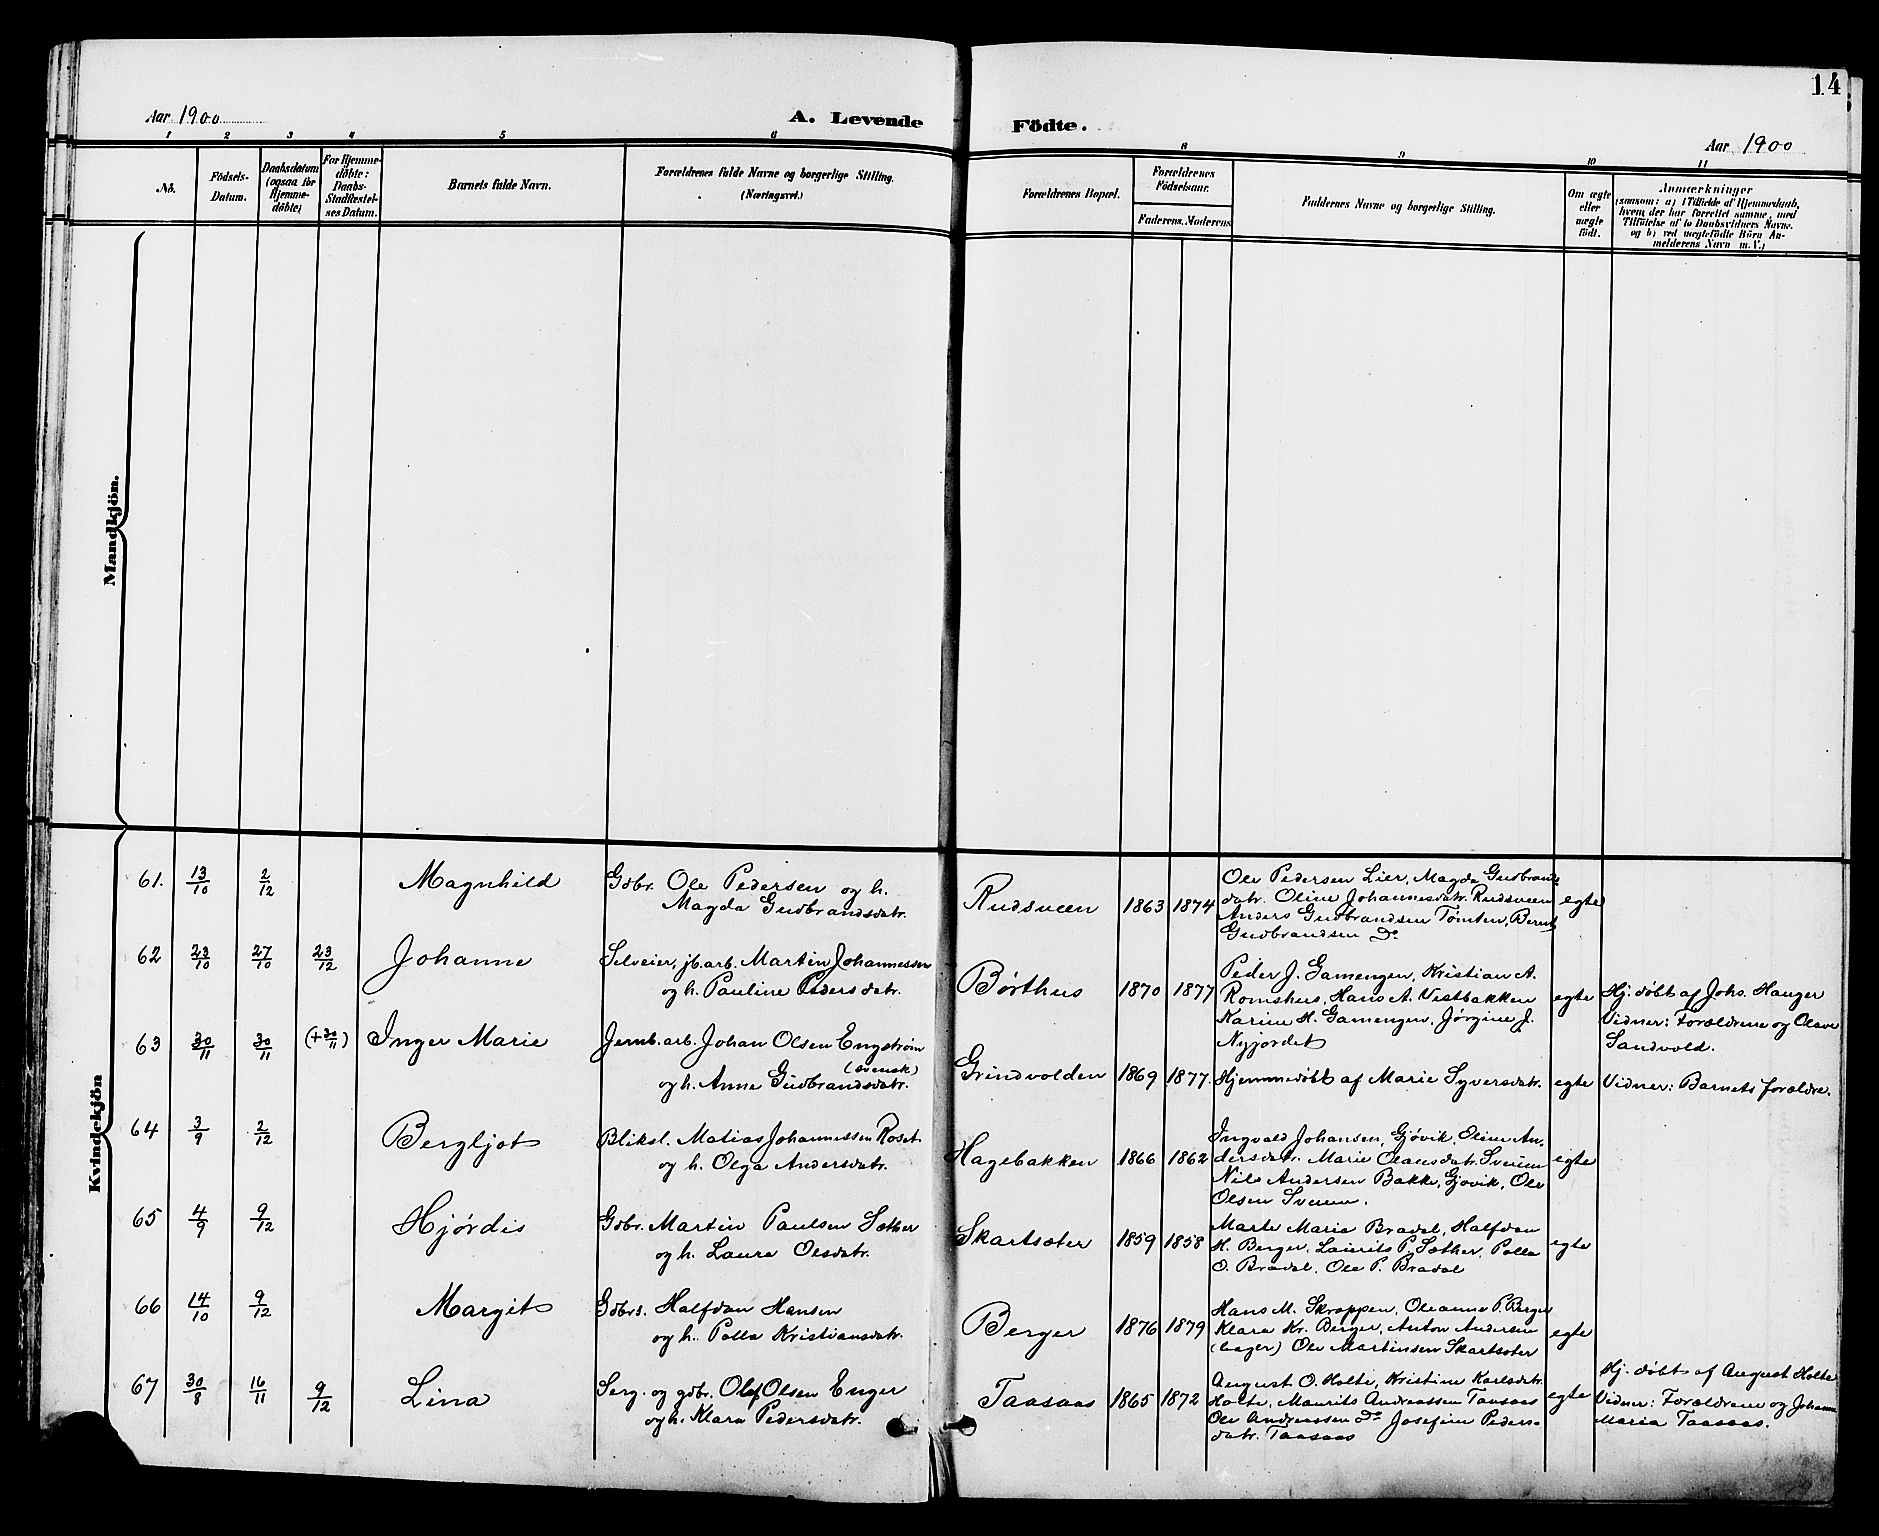 14
Aar 1900
A. Levende
Födte.
Aar 1900
1 2 3 4 5 6
8 9 10 11
No.
Födsels-
Datum.
Daabsdatum
(ogsaa for
Hjemme-
döbte)
For Hjemme-
døbte:
Daabs-
Stadfæstel-
ses Datum.
Barnets fulde Navn.
Forældrenes fulde Navne og borgerlige Stilling.
(Næringsvei.)
Forældrenes Bopæl.
Forældrenes
Födselsaar.
Faderens. Moderens
Faddernes Navne og borgerlige Stilling.
Om ægte
eller
uægte
födt.
Anmærkninger
(saasom: a) i Tilfælde af Hjemmedaab,
hvem der har forrettet samme, med
Tilföielse af to Daabsvidners Navne.
og b) ved uægtefödte Börn An-
melderens Navn m. V.)
Mandkjön.
Kvindekjön
61. 13/10 2/12 Magnhild
Gdbr. Ole Pedersen og h.
Magda Gudbrandsdatr.
Rudsveen 1863 1874
Ole Pedersen Lier, Magda Gudbrands-
datr. Oline Johannesdatr. Rudsveen
Anders Gudbrandsen Tømten, Bernt
Gudbrandsen Do
egte
62 23/10 27/10 23/12 Johanne
Selveier, jb.arb. Martin Johannessen
og h. Pauline Pedersdatr.
Børthus 1870 1877
Peder J. Gamengen, Kristian A.
Romshus, Hans A. Vestbakken
Karine H. Gamengen, Jørgine J.
Nyjordet
egte
Hj. døbt af Johs. Hauger
Vidner: Forældrene og Olave
Sandvold.
63 30/11 30/11 (+30/11) Inger Marie
Jernb.arb. Johan Olsen Engstrøm
(svensk)
og h. Anne Gudbrandsdatr.
Grindvolden 1869 1877
Hjemmedøbt af Marie Syversdatr.
egte
Vidner: Barnets forældre.
64 3/9 2/12 Bergljot
Bliksl. Matias Johannessen Roset
og h. Olga Andersdatr.
Hagebakken 1866 1862
Ingvald Johansen, Gjøvik, Oline An-
dersdatr. Marie Olausdatr. Sveum
Nils Andersen Bakke, Gjøvik, Ole
Olsen Sveum.
egte
65 4/9 9/12 Hjørdis
Gdbr. Martin Paulsen Sæther
og h. Laura Olsdatr.
Skartsæter 1859 1858
Marte Marie Bradal, Halfdan
H. Berger, Laurits P. Sæther, Palla
O. Bradal, Ole P. Bradal
egte
66 14/10 9/12 Margit
Gdbrs. Halfdan Hansen
og h. Palla Kristiansdatr.
Berger 1876 1879
Hans M. Skroppen, Oleanna P. Berger
Klara Kr. Berger, Anton Andersen
(bager) Ole Martinsen Skartsæter
egte
67 30/8 16/11 9/12 Lina
Serg. og gdbr. Olaf Olsen Enger
og h. Klara Pedersdatr.
Taasaas 1865 1872
August O. Holte, Kristine Karlsdatr.
Holte, Maurits Andreassen Taasaas
Ole Andreassen Do Josefine Peders-
datr. Taasaas
egte
Hj. døbt af August Holte
Vidner: Forældrene og Johanne
Maria Taasaas.